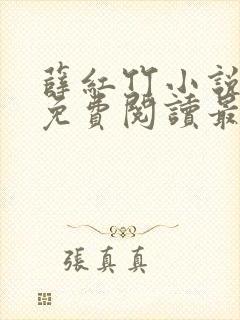 薛紅竹小說
免費閱讀最
張真真